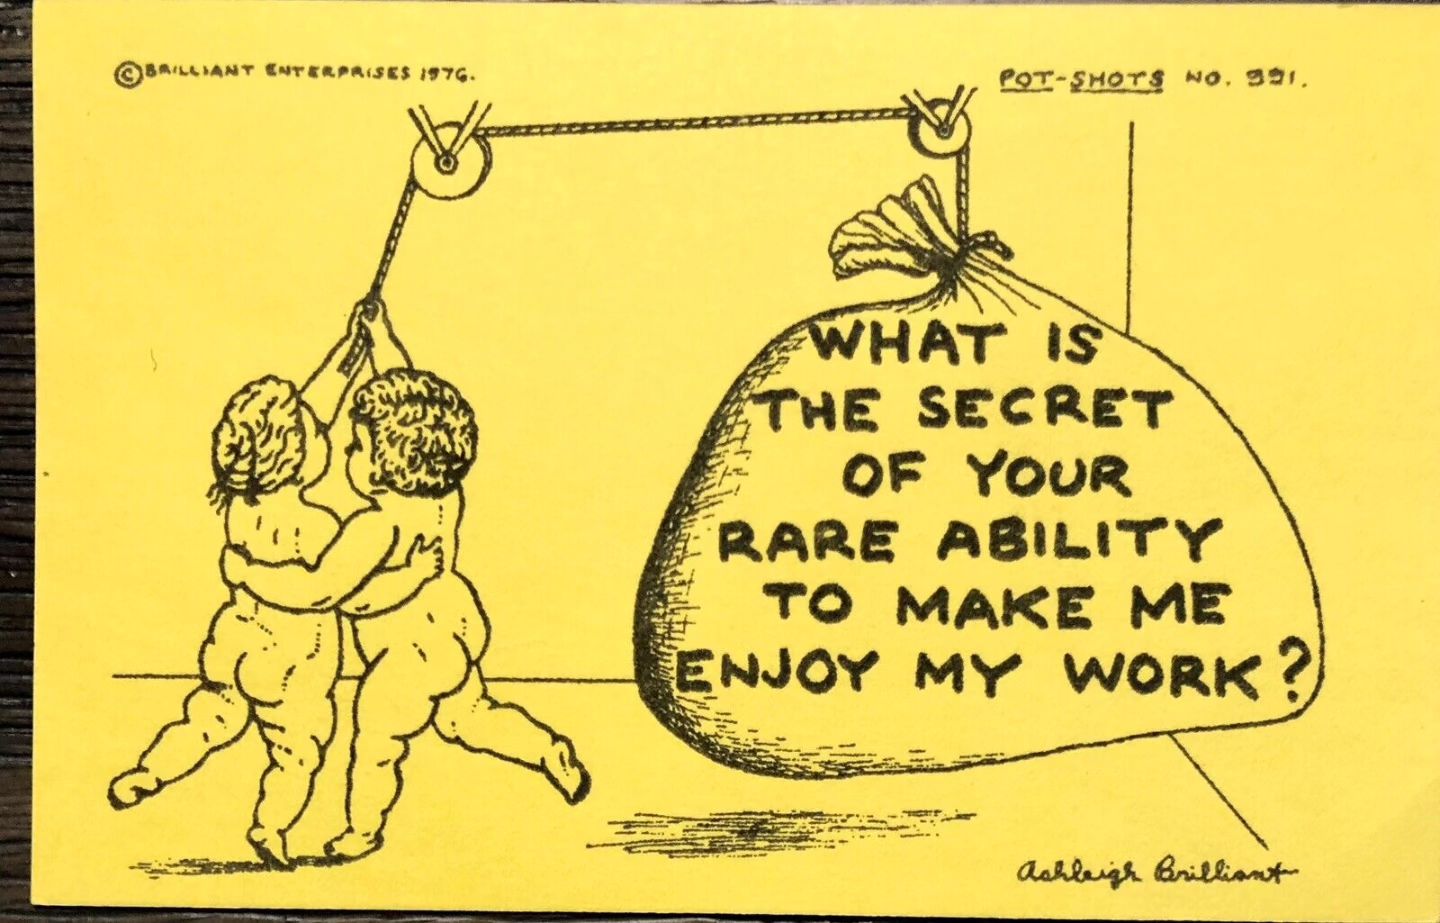 ©BRILLIANT ENTERPRISES 1976.
POT-SHOTS NO. 391.
WHAT IS
THE SECRET
OF YOUR
RARE ABILITY
TO MAKE ME
ENJOY MY WORK?
Ashleigh Brilliant